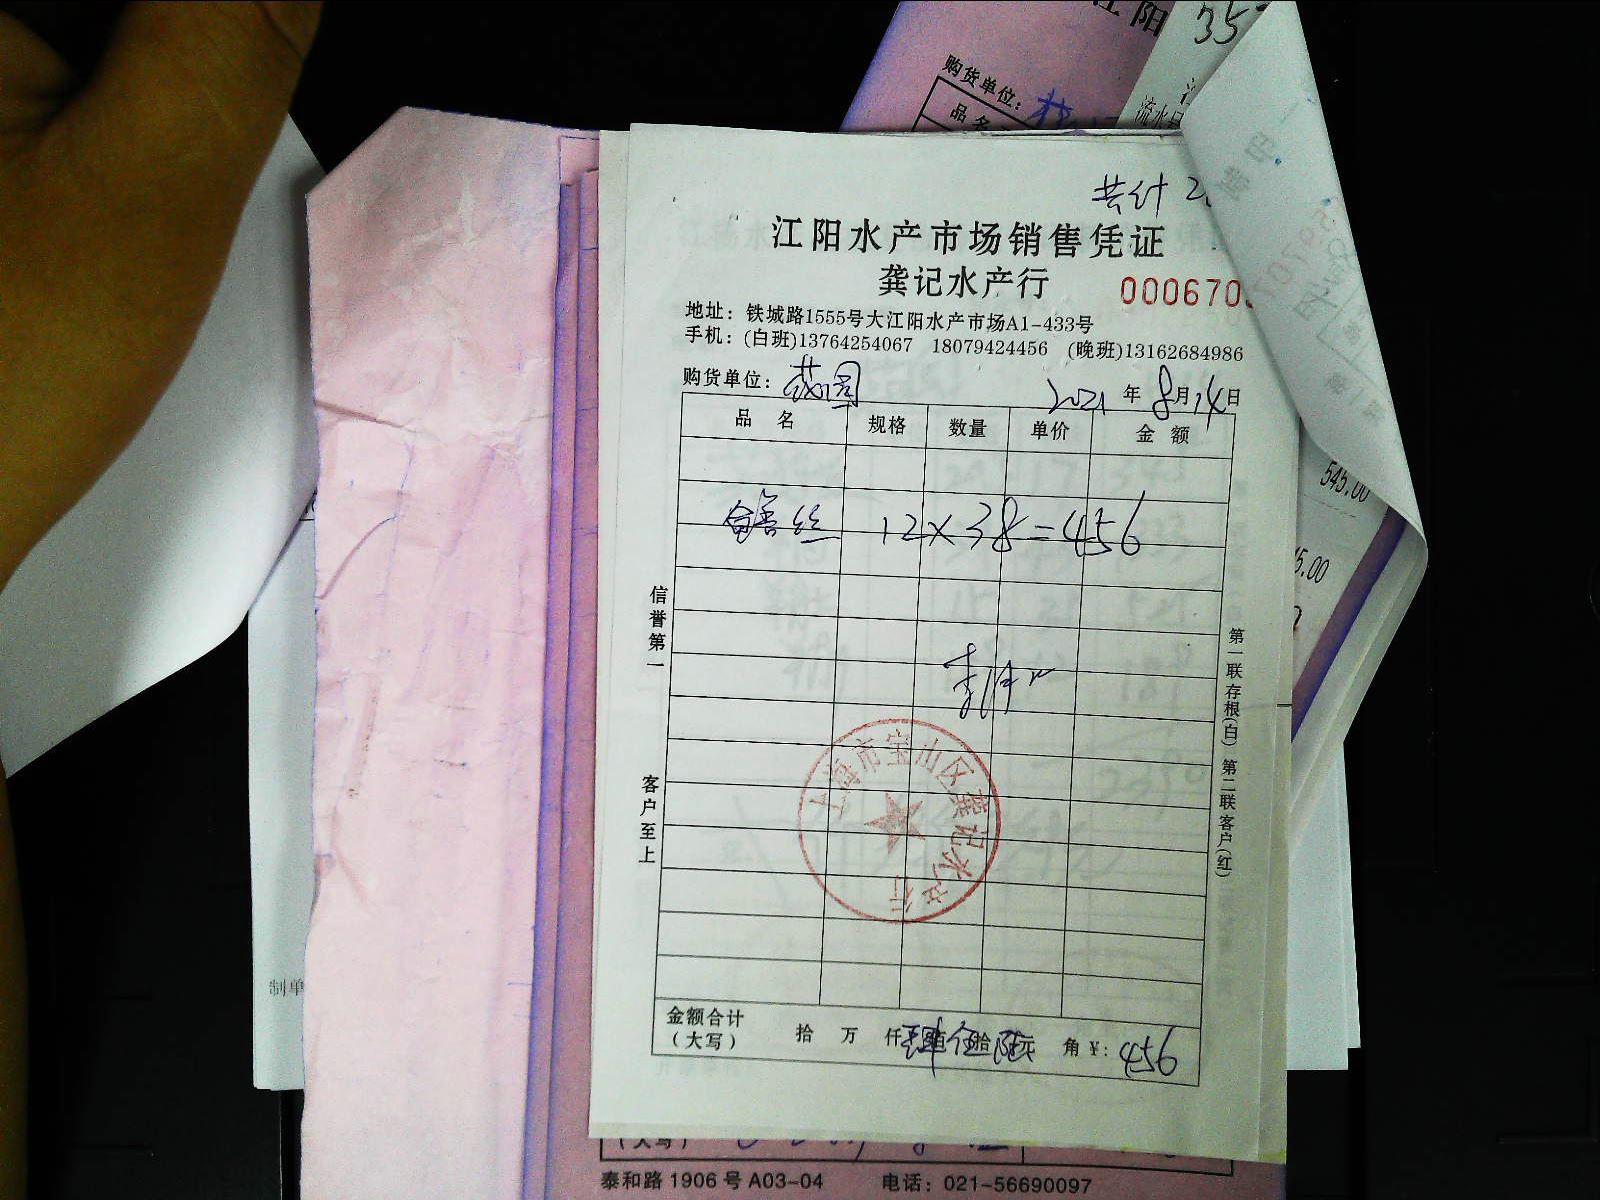 江阳
357
购货单位：
品名
流水号
共计 2
江阳水产市场销售凭证
龚记水产行
000670
地址：铁城路1555号大江阳水产市场A1-433号
手机：(白班)13764254067 18079424456 (晚班)13162684986
购货单位：
2021 年 8月14日
品 名 规格 数量 单价 金 额
鳝丝 12×38=456
545.00
5.00
信誉第一
客户至上
第一联存根(白) 第二联客户(红)
上海市宝山区龚记水产行
金额合计
(大写)
拾 万 仟 肆佰伍拾陆元 角 ¥: 456
制单
(大写)
泰和路 1906 号 A03-04 电话：021-56690097